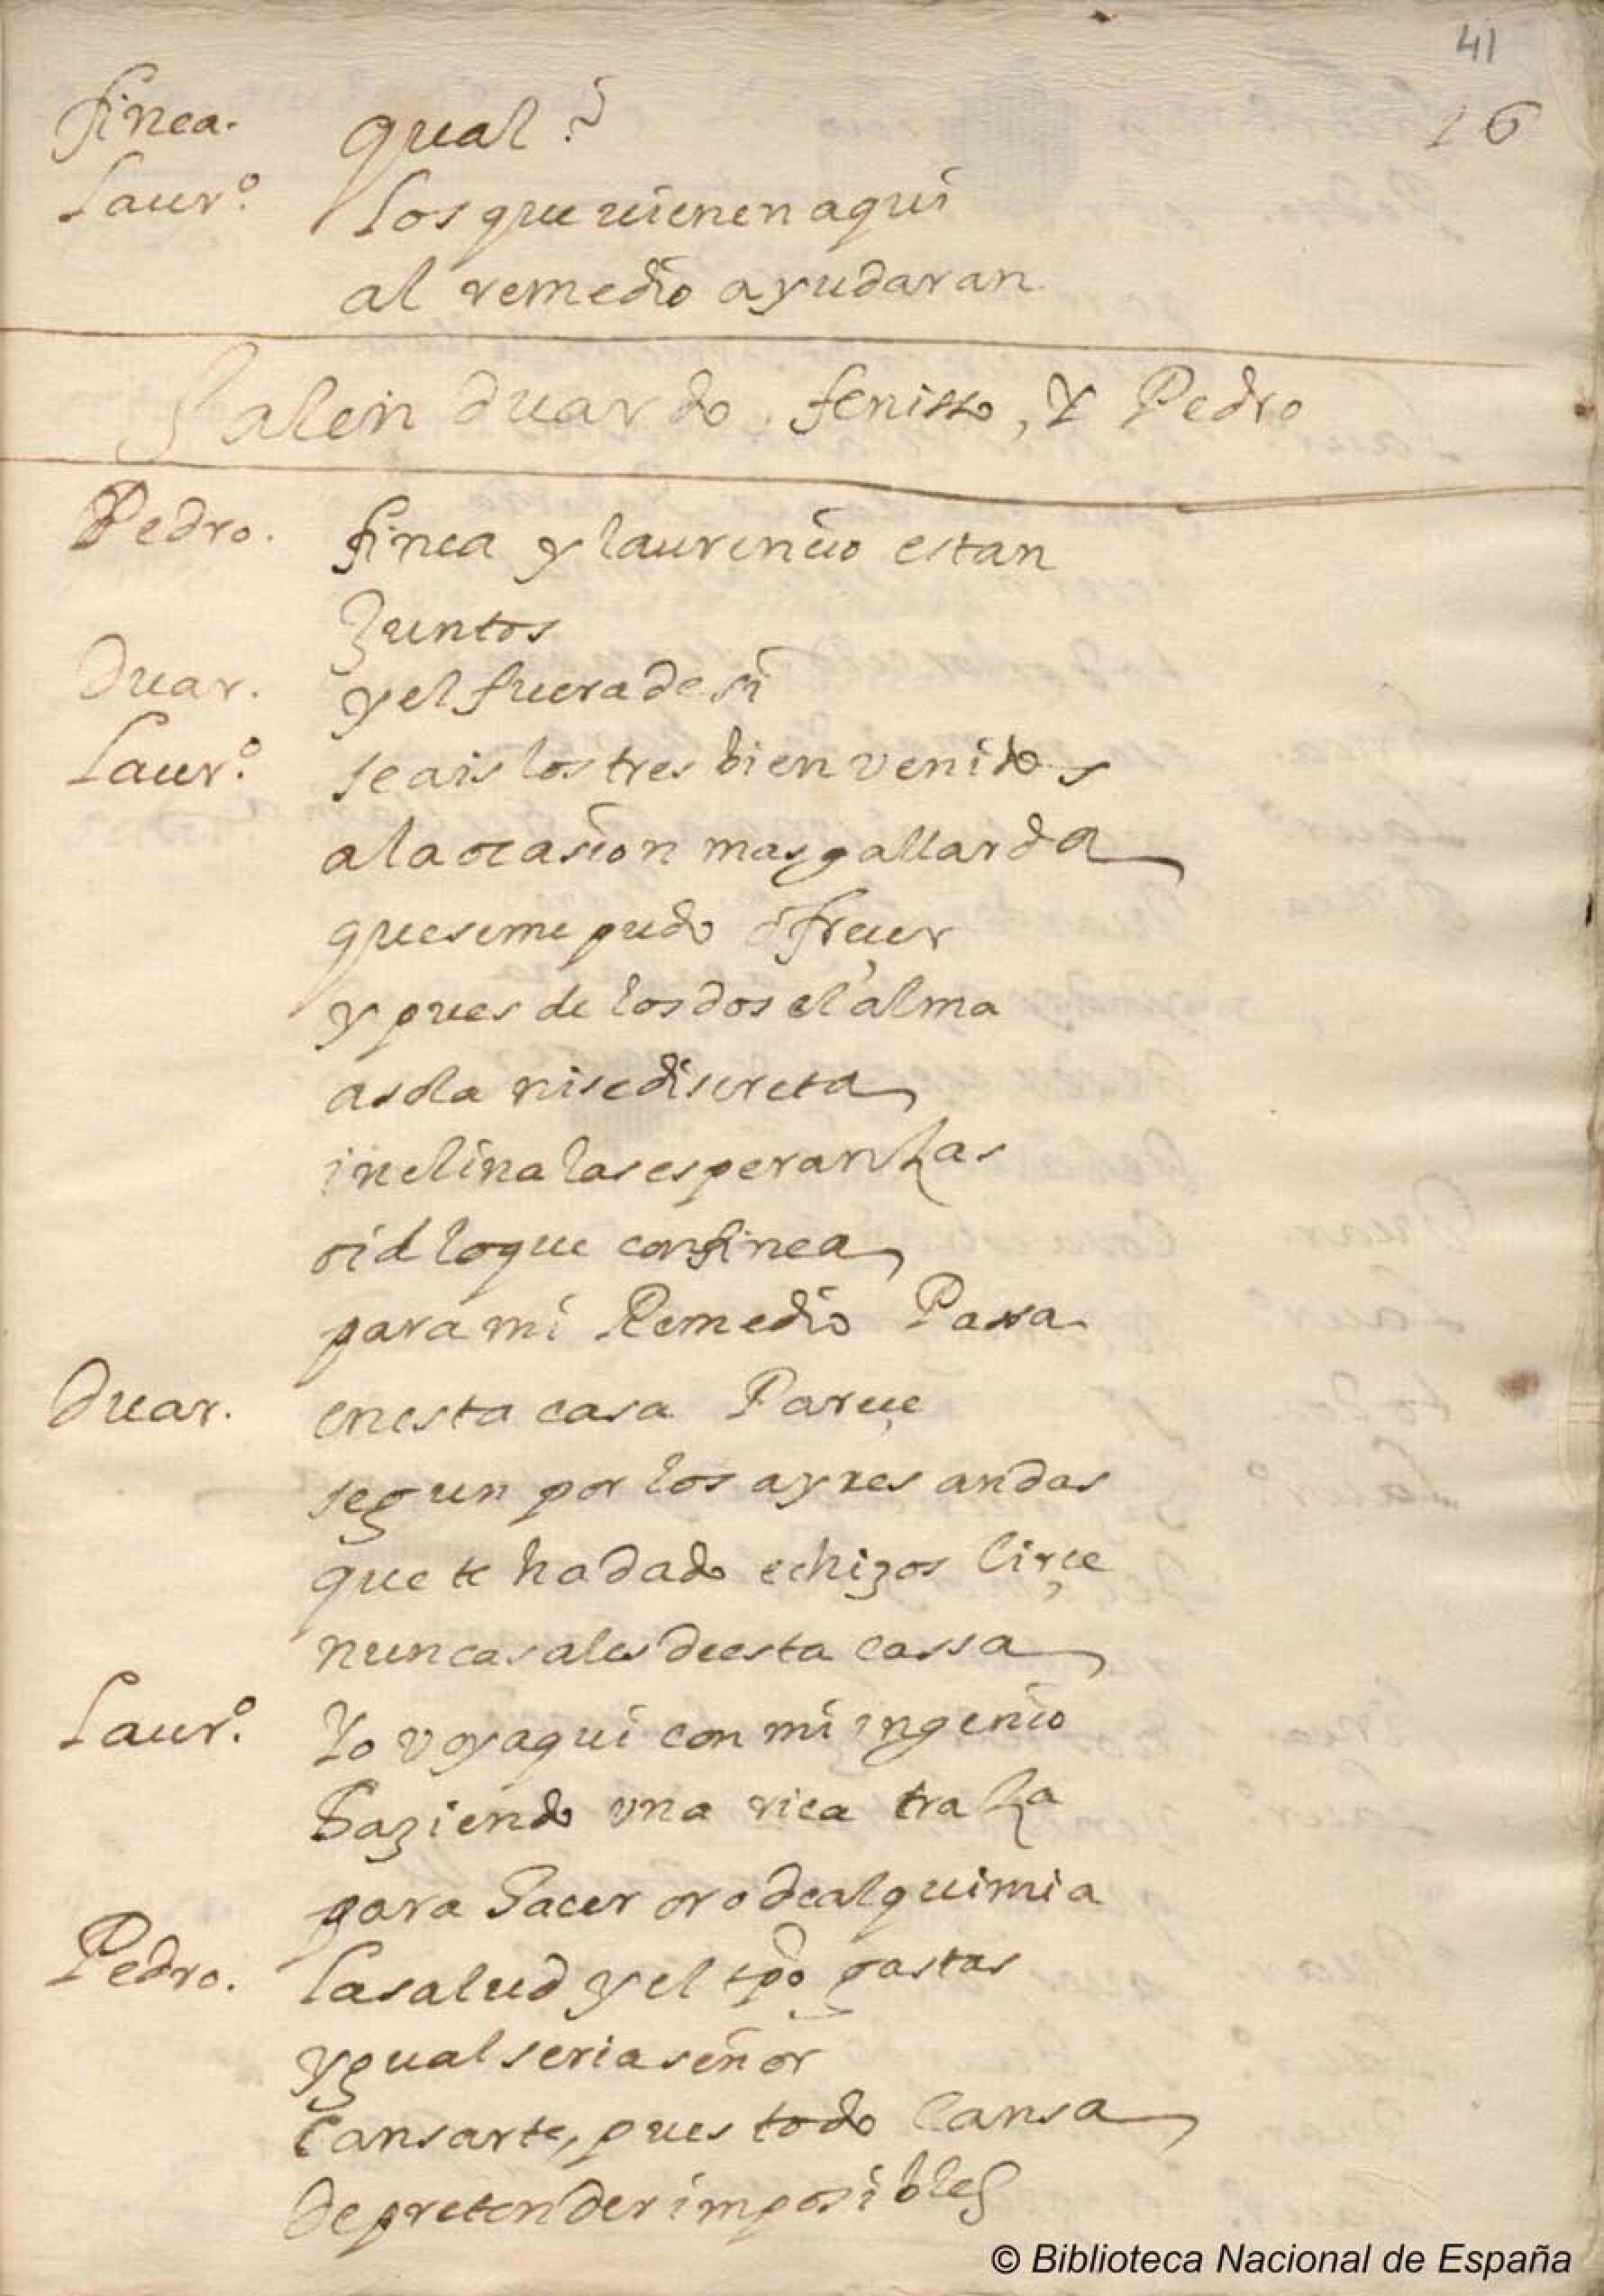 41
16
finea. qual?
Laurº. Los que uienen aqui
al remedio ayudaran
Salen duardo fenisso, Y Pedro
Pedro. finea y laurencio estan
Juntos
Duar. y el fuera de si
Laurº. seais los tres bien venidos
a la ocasion mas gallarda
que se me pudo ofrecer
y pues de los dos el alma
a sola nise discreta
inclina las esperanzas
oid lo que con finea
para mi Remedio Passa
Duar. en esta casa Pareçe
segun por los ayres andas
que te ha dado echizos Cirçe
nunca sales de esta cassa
Laurº. Yo voy aqui con mi ingenio
haziendo vna rica traza
para hacer oro de alquimia
Pedro. la salud y el tpo gastas
ygual seria señor
cansarte, pues todo cansa
de pretender imposibles
© Biblioteca Nacional de España